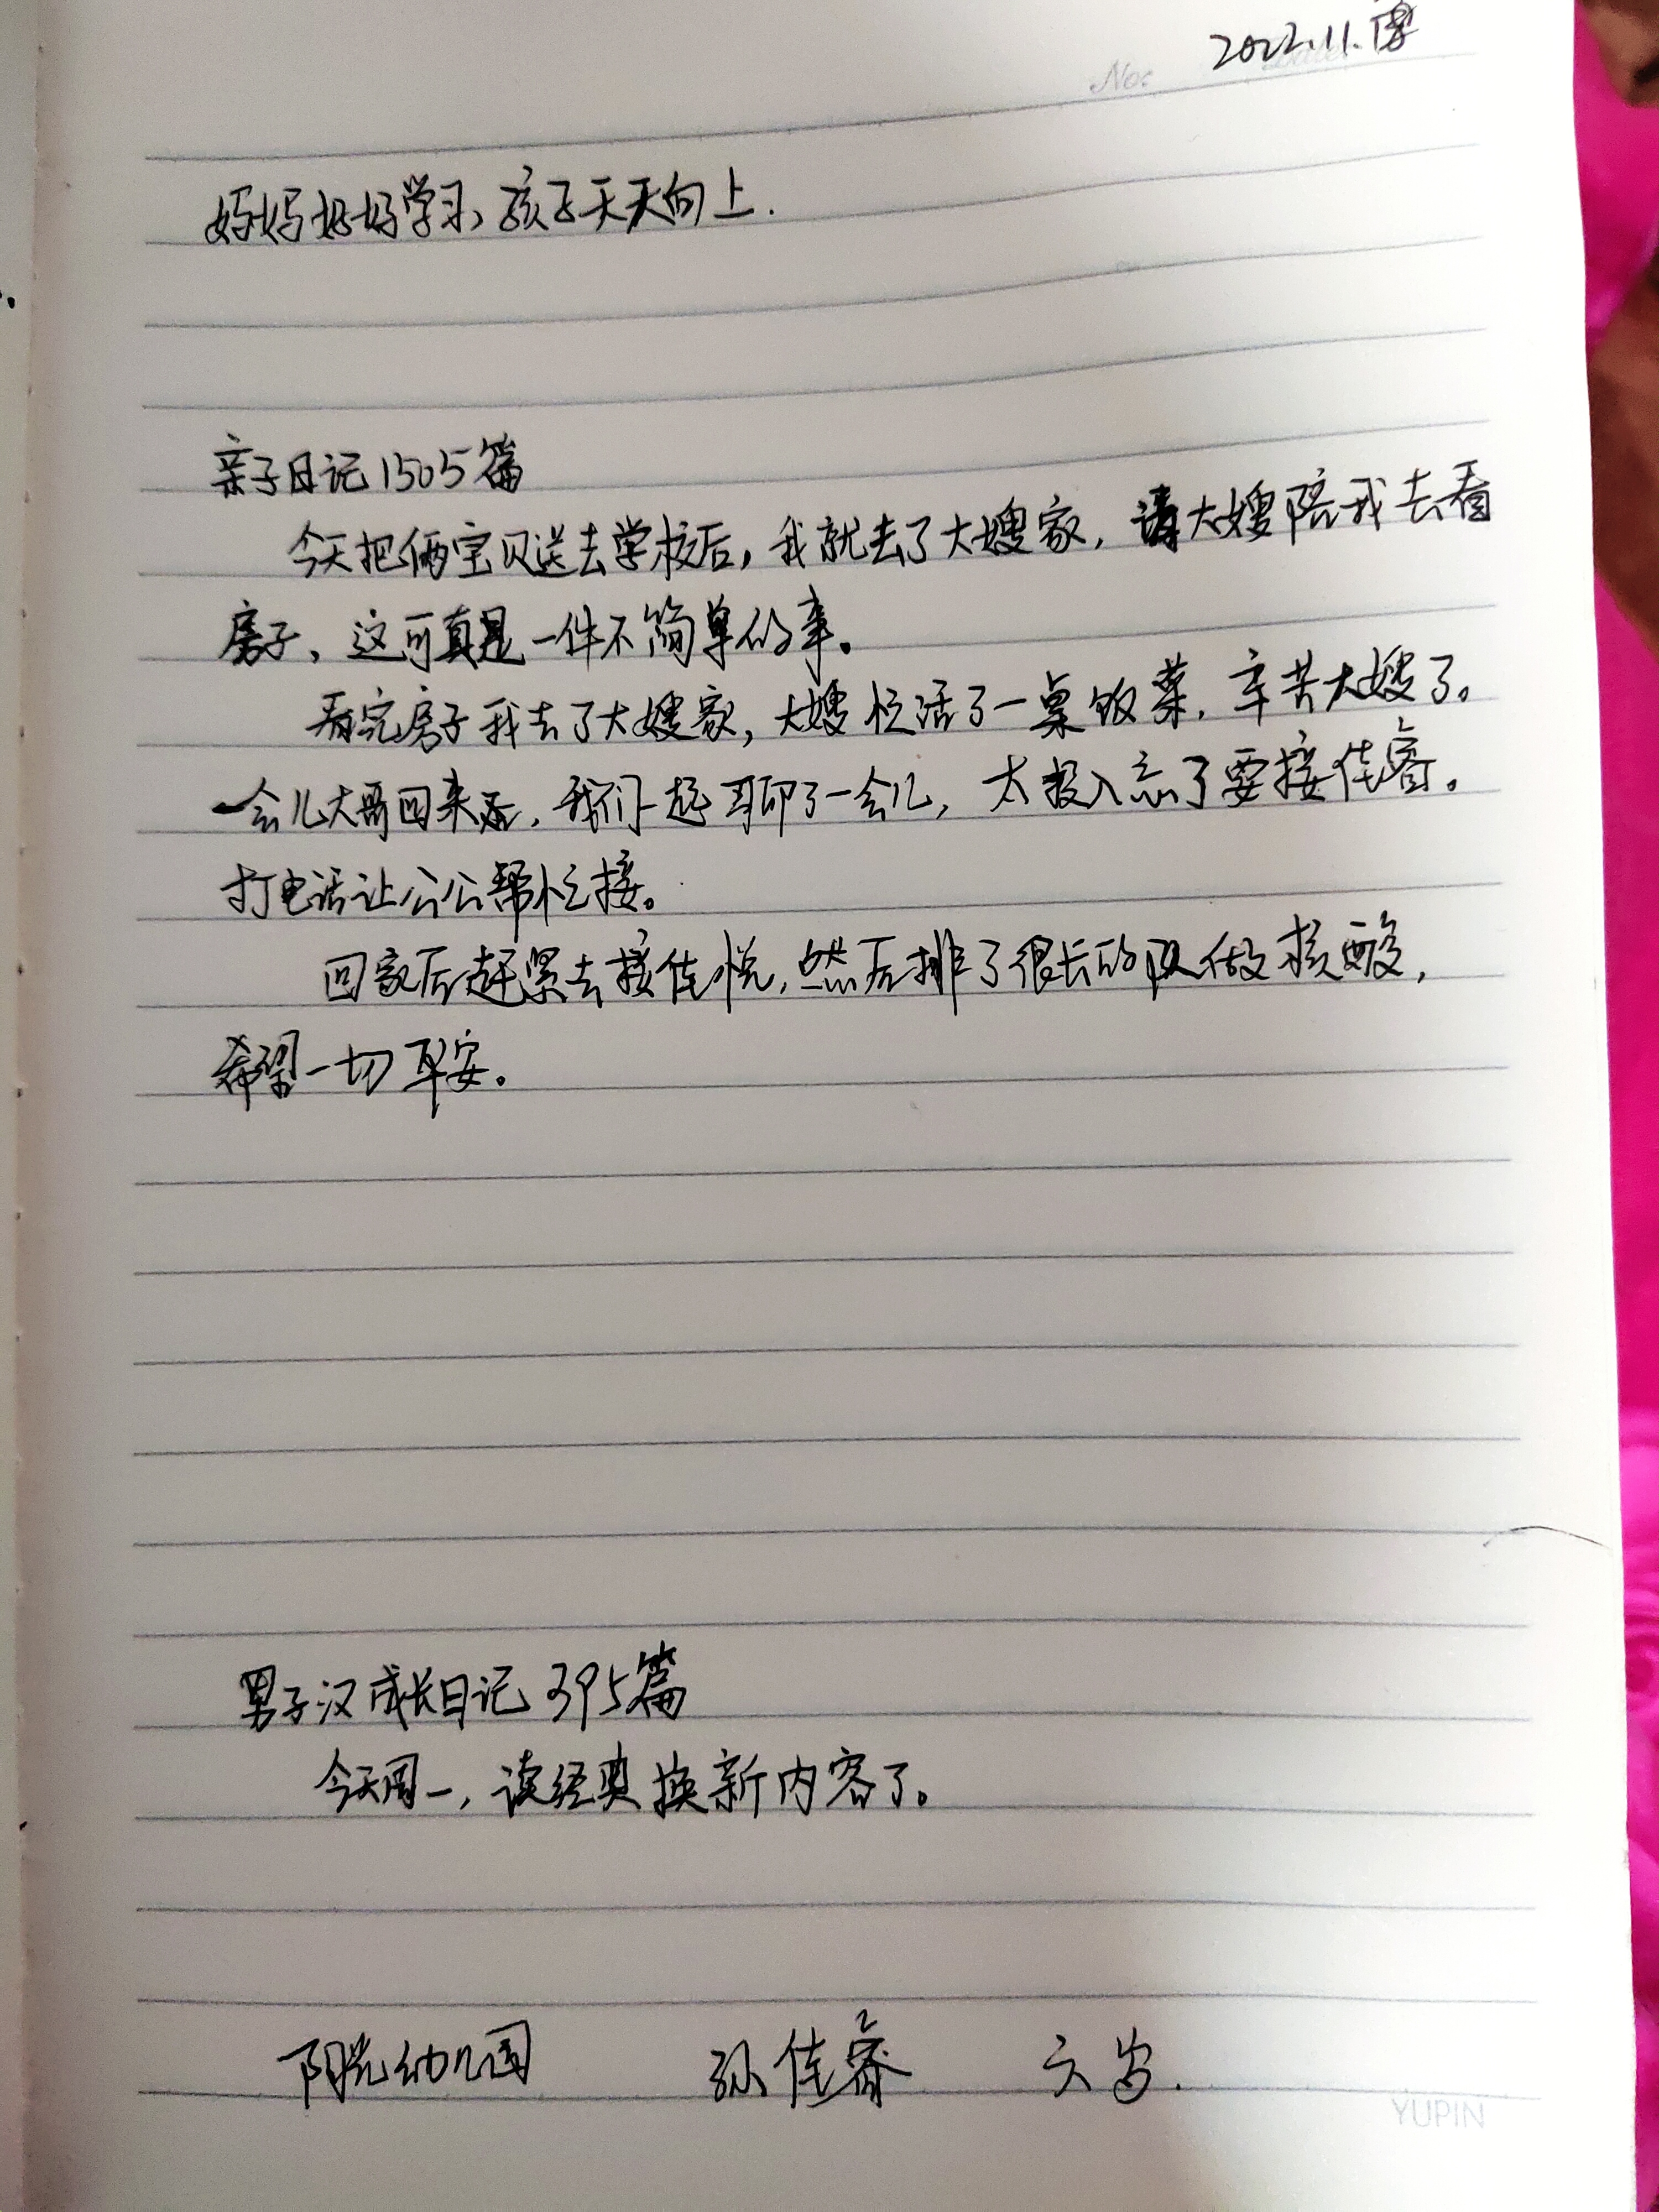 2022.11.
No:
妈妈好好学习，孩子天天向上.
亲子日记1505篇
今天把俩宝贝送去学校后，我就去了大嫂家，请大嫂陪我去看
房子，这可真是一件不简单的事。
看完房子我去了大嫂家，大嫂忙活了一桌饭菜，辛苦大嫂了。
一会儿大哥回来后，我们一起聊了一会儿，太投入忘了要接佳睿。
打电话让公公帮忙接。
回家后赶紧去接佳悦，然后排了很长的队做核酸，
希望一切平安。
男子汉成长日记395篇
今天周一，读经典换新内容了。
阳光幼儿园 孙佳睿 六岁.
YUPIN